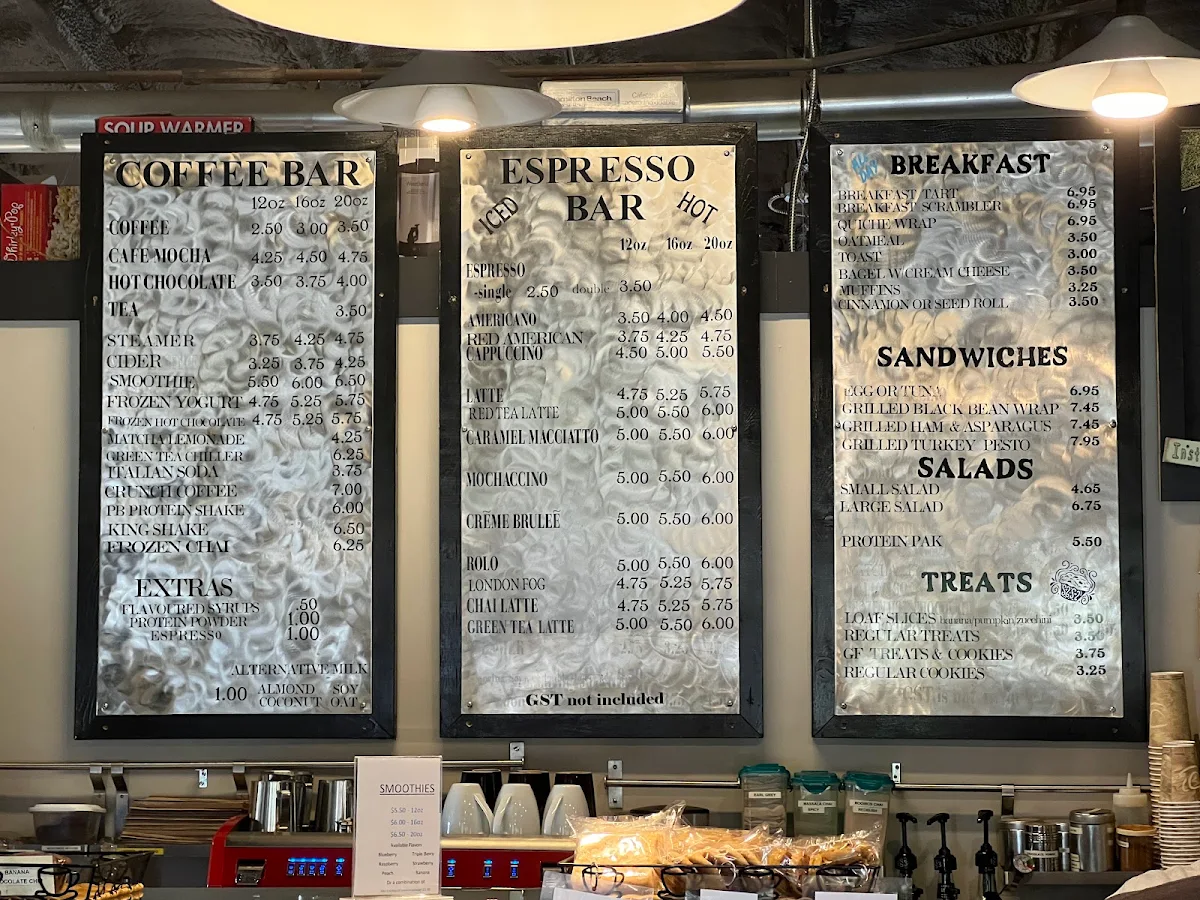 SOUP WARMER
Whirley Pop
COFFEE BAR
12oz 16oz 20oz
COFFEE 2.50 3.00 3.50
CAFE MOCHA 4.25 4.50 4.75
HOT CHOCOLATE 3.50 3.75 4.00
TEA 3.50
STEAMER 3.75 4.25 4.75
CIDER 3.25 3.75 4.25
SMOOTHIE 5.50 6.00 6.50
FROZEN YOGURT 4.75 5.25 5.75
FROZEN HOT CHOCOLATE 4.75 5.25 5.75
MATCHA LEMONADE 4.25
GREEN TEA CHILLER 6.25
ITALIAN SODA 3.75
CRUNCH COFFEE 7.00
PB PROTEIN SHAKE 6.00
KING SHAKE 6.50
FROZEN CHAI 6.25
EXTRAS
FLAVOURED SYRUPS .50
PROTEIN POWDER 1.00
ESPRESSO 1.00
ALTERNATIVE MILK
1.00 ALMOND SOY
COCONUT OAT
ESPRESSO
ICED BAR HOT
12oz 16oz 20oz
ESPRESSO
-single 2.50 double 3.50
AMERICANO 3.50 4.00 4.50
RED AMERICAN 3.75 4.25 4.75
CAPPUCCINO 4.50 5.00 5.50
LATTE 4.75 5.25 5.75
RED TEA LATTE 5.00 5.50 6.00
CARAMEL MACCIATTO 5.00 5.50 6.00
MOCHACCINO 5.00 5.50 6.00
CRÉME BRULEÉ 5.00 5.50 6.00
ROLO 5.00 5.50 6.00
LONDON FOG 4.75 5.25 5.75
CHAI LATTE 4.75 5.25 5.75
GREEN TEA LATTE 5.00 5.50 6.00
GST not included
BREAKFAST
BREAKFAST TART 6.95
BREAKFAST SCRAMBLER 6.95
QUICHE WRAP 6.95
OATMEAL 3.50
TOAST 3.00
BAGEL W/CREAM CHEESE 3.50
MUFFINS 3.25
CINNAMON OR SEED ROLL 3.50
SANDWICHES
EGG OR TUNA 6.95
GRILLED BLACK BEAN WRAP 7.45
GRILLED HAM & ASPARAGUS 7.45
GRILLED TURKEY PESTO 7.95
SALADS
SMALL SALAD 4.65
LARGE SALAD 6.75
PROTEIN PAK 5.50
TREATS
LOAF SLICES banana/pumpkin/zucchini 3.50
REGULAR TREATS 3.50
GF TREATS & COOKIES 3.75
REGULAR COOKIES 3.25
SMOOTHIES
$5.50 - 12oz
$6.00 - 16oz
$6.50 - 20oz
Available Flavors
Blueberry Triple Berry
Raspberry Strawberry
Peach Banana
Or a combination of
EARL GREY
BANANA